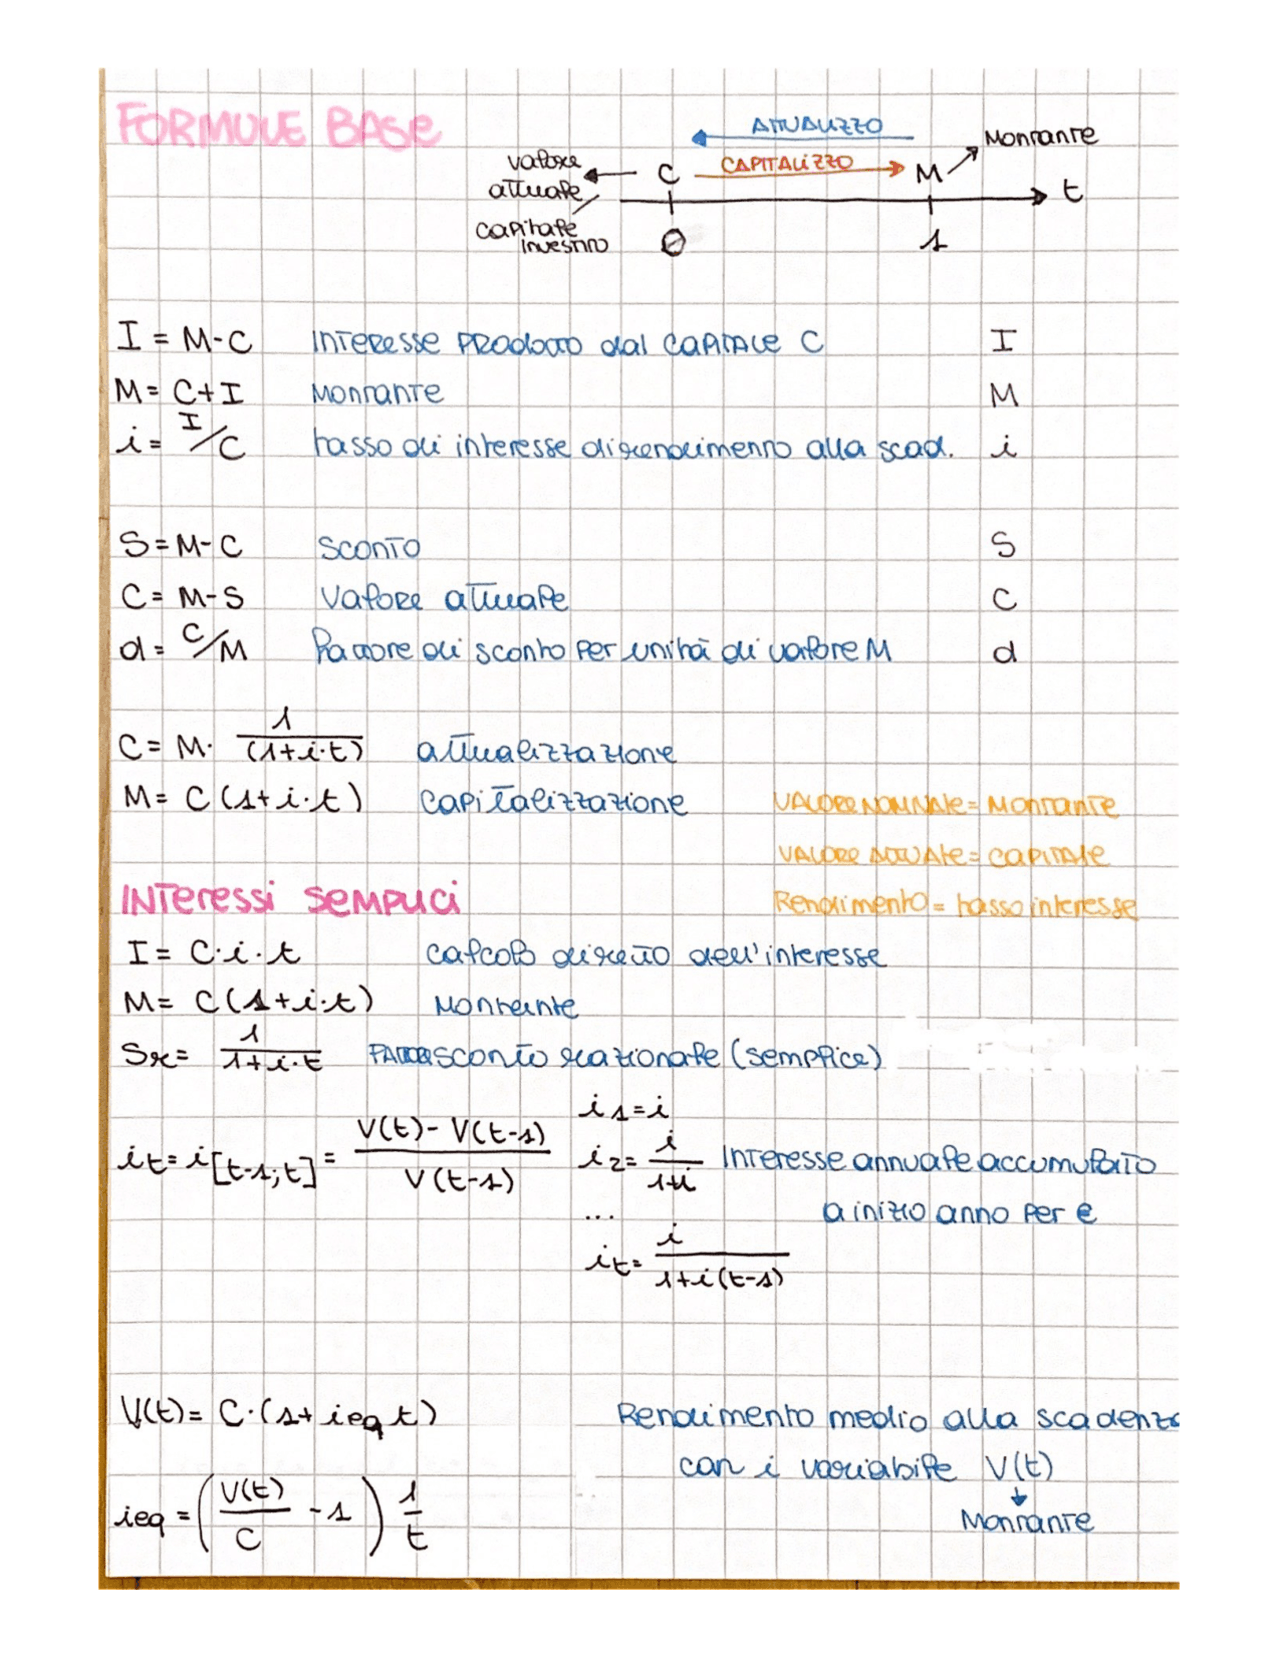 FORMULE BASE
ATTUALIZZO
Montante
valore
attuale
C
CAPITALIZZO
M
t
capitale
investito
0
1
I = M-C interesse prodotto dal capitale C I
M = C+I Montante M
i = I/C tasso di interesse di rendimento alla scad. i
S = M-C sconto S
C = M-S Valore attuale C
d = C/M Fattore di sconto per unità di valore M d
C = M· 1/(1+i·t) attualizzazione
M = C (1+i·t) capitalizzazione
VALORE NOMINALE = Montante
VALORE ATTUALE = capitale
Rendimento = tasso interesse
INTERESSI SEMPLICI
I = C·i·t calcolo diretto dell'interesse
M = C(1+i·t) Montante
Sr = 1/1+i·t FATTORE sconto razionale (semplice)
it = i[t-1;t] = V(t)- V(t-1)/V(t-1)
i1 = i
i2 = i/1+i Interesse annuale accumulato
a inizio anno per e
...
it = i/1+i(t-1)
V(t) = C·(1+ieq t) Rendimento medio alla scadenza
con i variabile V(t)
Montante
ieq = (V(t)/C -1) 1/t